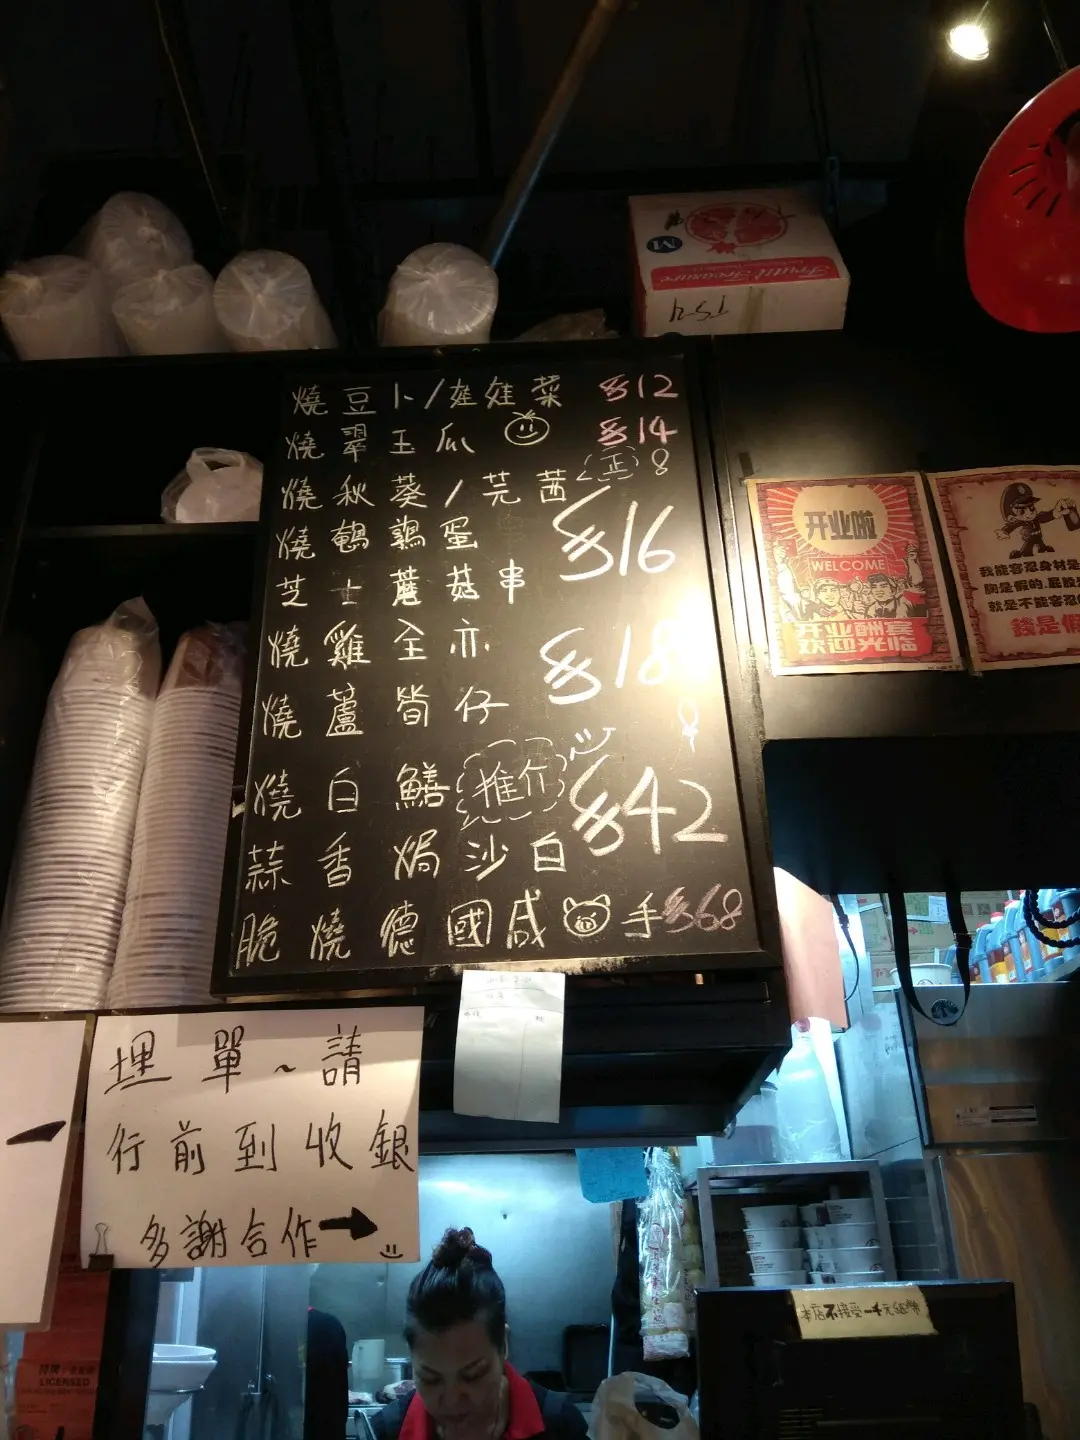 M
Fruit Treasure
TS-4
燒豆卜/娃娃菜 $12
燒翠玉瓜 $14
燒秋葵/芫茜 正
燒鵪鶉蛋 $16
芝士蘑菇串
燒雞全亦 $18
燒蘆筍仔
燒白鱔 推介 $42
蒜香焗沙白
脆燒德國咸手 $68
开业啦
WELCOME
开业酬宾
欢迎光临
我能容忍身材是
胸是假的.屁股
就是不能容忍
錢是假
埋單~請
行前到收銀
多謝合作
本店不接受一千元紙幣
LICENSED